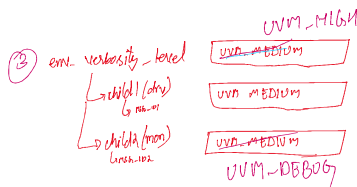 UVM_HIGH
③ env_verbosity_level UVM MEDIUM
child1 (drv) UVM MEDIUM
child2 (mon) UVM MEDIUM
UVM_DEBUG